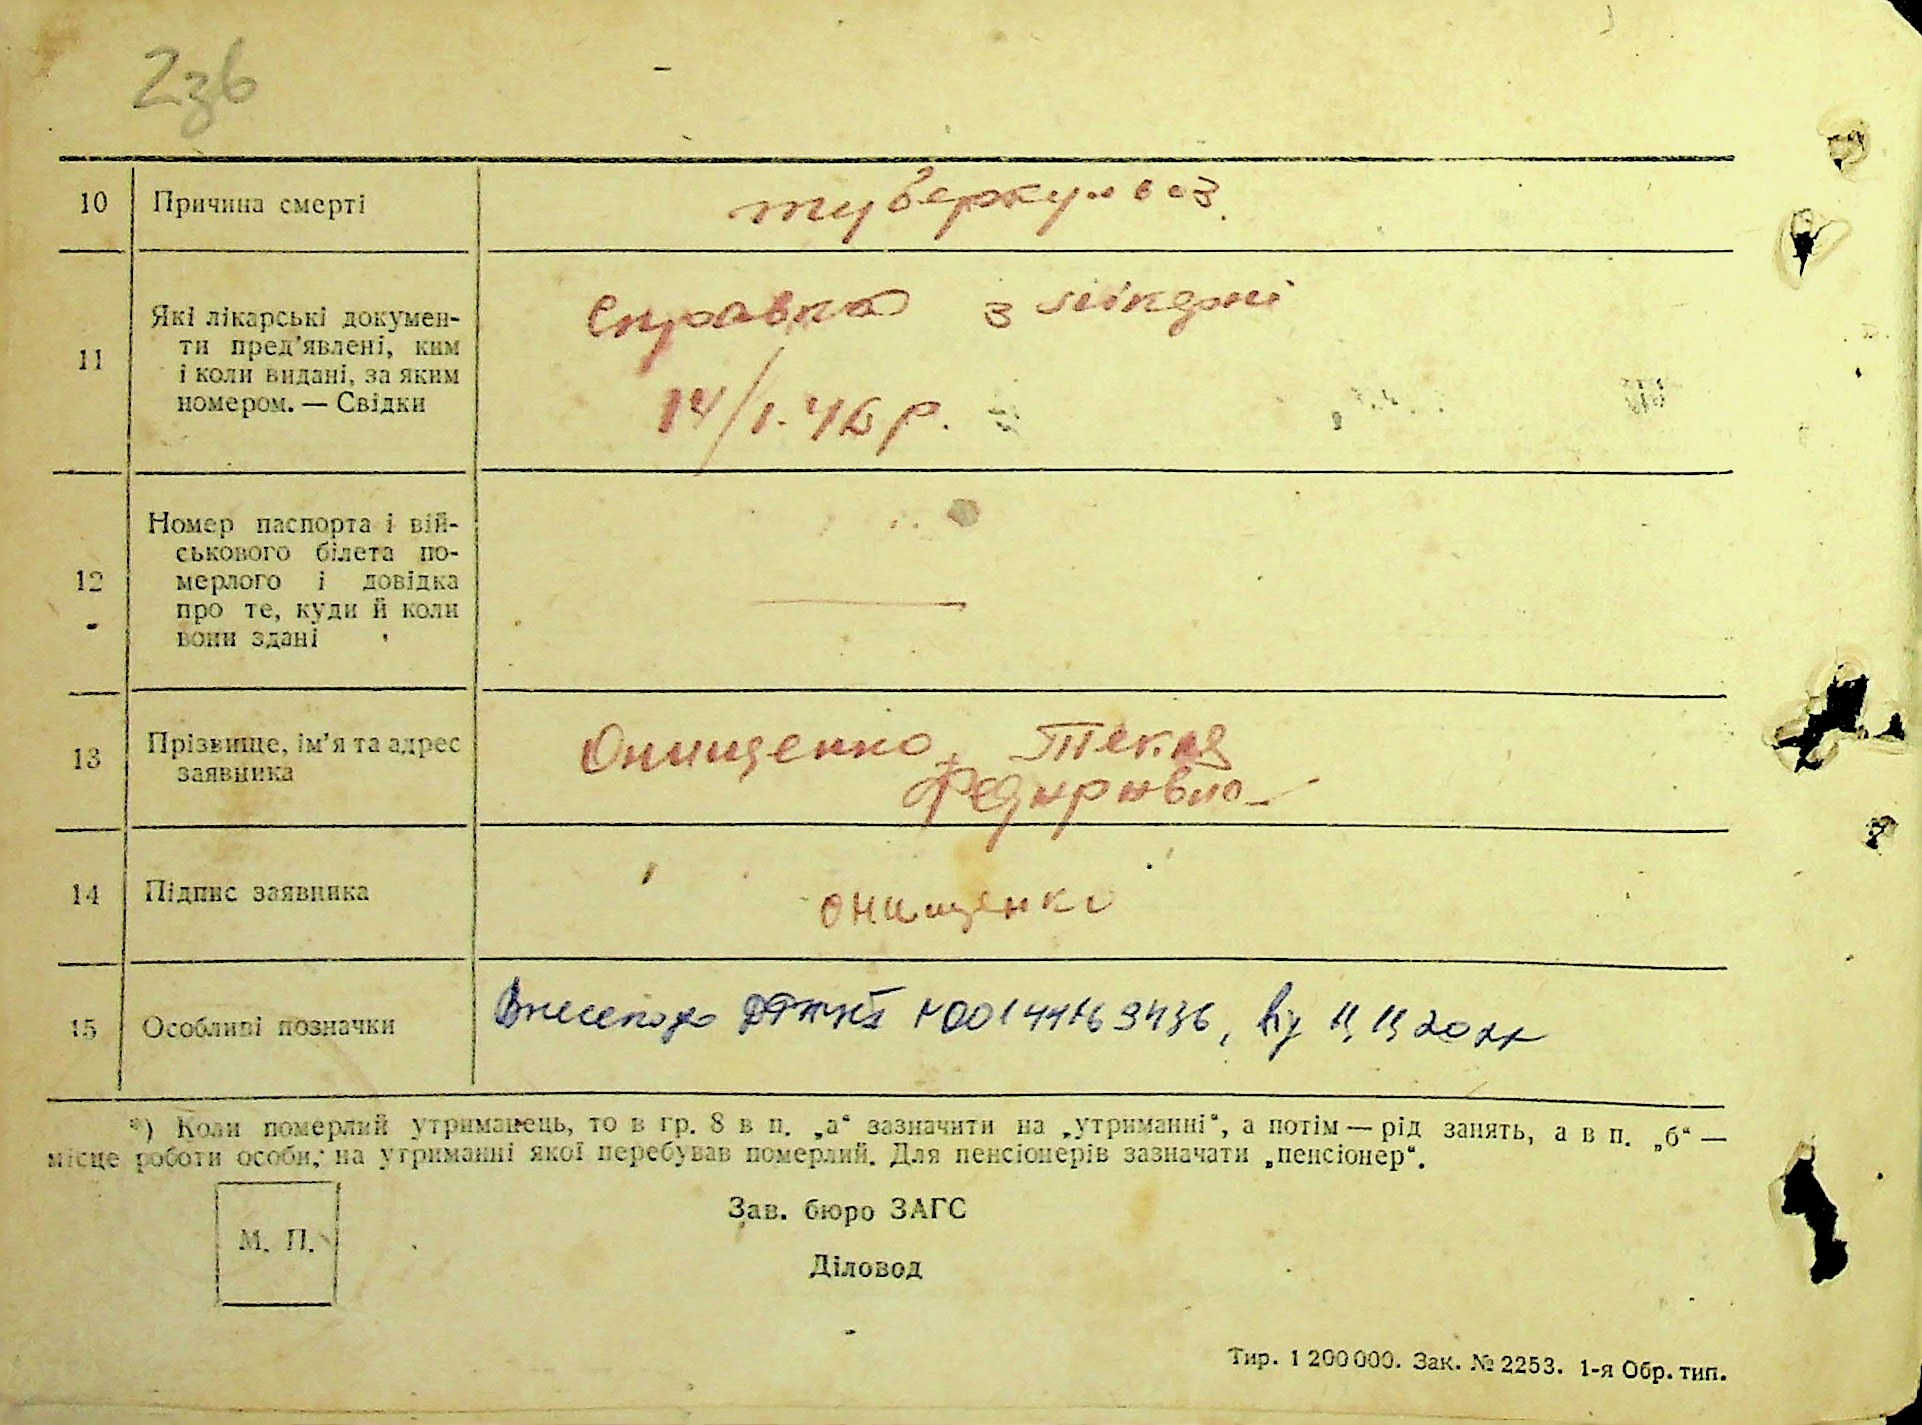 236
10 Причина смерті туберкульоз
11 Які лікарські докумен-
ти пред'явлені, ким
і коли видані, за яким
номером. — Свідки
Справка з лікарні
14/1. 46 р.
12 Номер паспорта і вій-
ськового білета по-
мерлого і довідка
про те, куди й коли
вони здані
13 Прізвище, ім'я та адрес
заявника
Онищенко Текля
Федирівна
14 Підпис заявника Онищенко
15 Особливі позначки Внесено до ДРАЦС 00144169436, від 11.11.2022
*) Коли померлий утриманець, то в гр. 8 в п. „а“ зазначити на „утриманні“, а потім — рід занять, а в п. „б“ —
місце роботи особи, на утриманні якої перебував померлий. Для пенсіонерів зазначати „пенсіонер“.
Зав. бюро ЗАГС
М. П.
Діловод
Тир. 1 200 000. Зак. № 2253. 1-я Обр. тип.